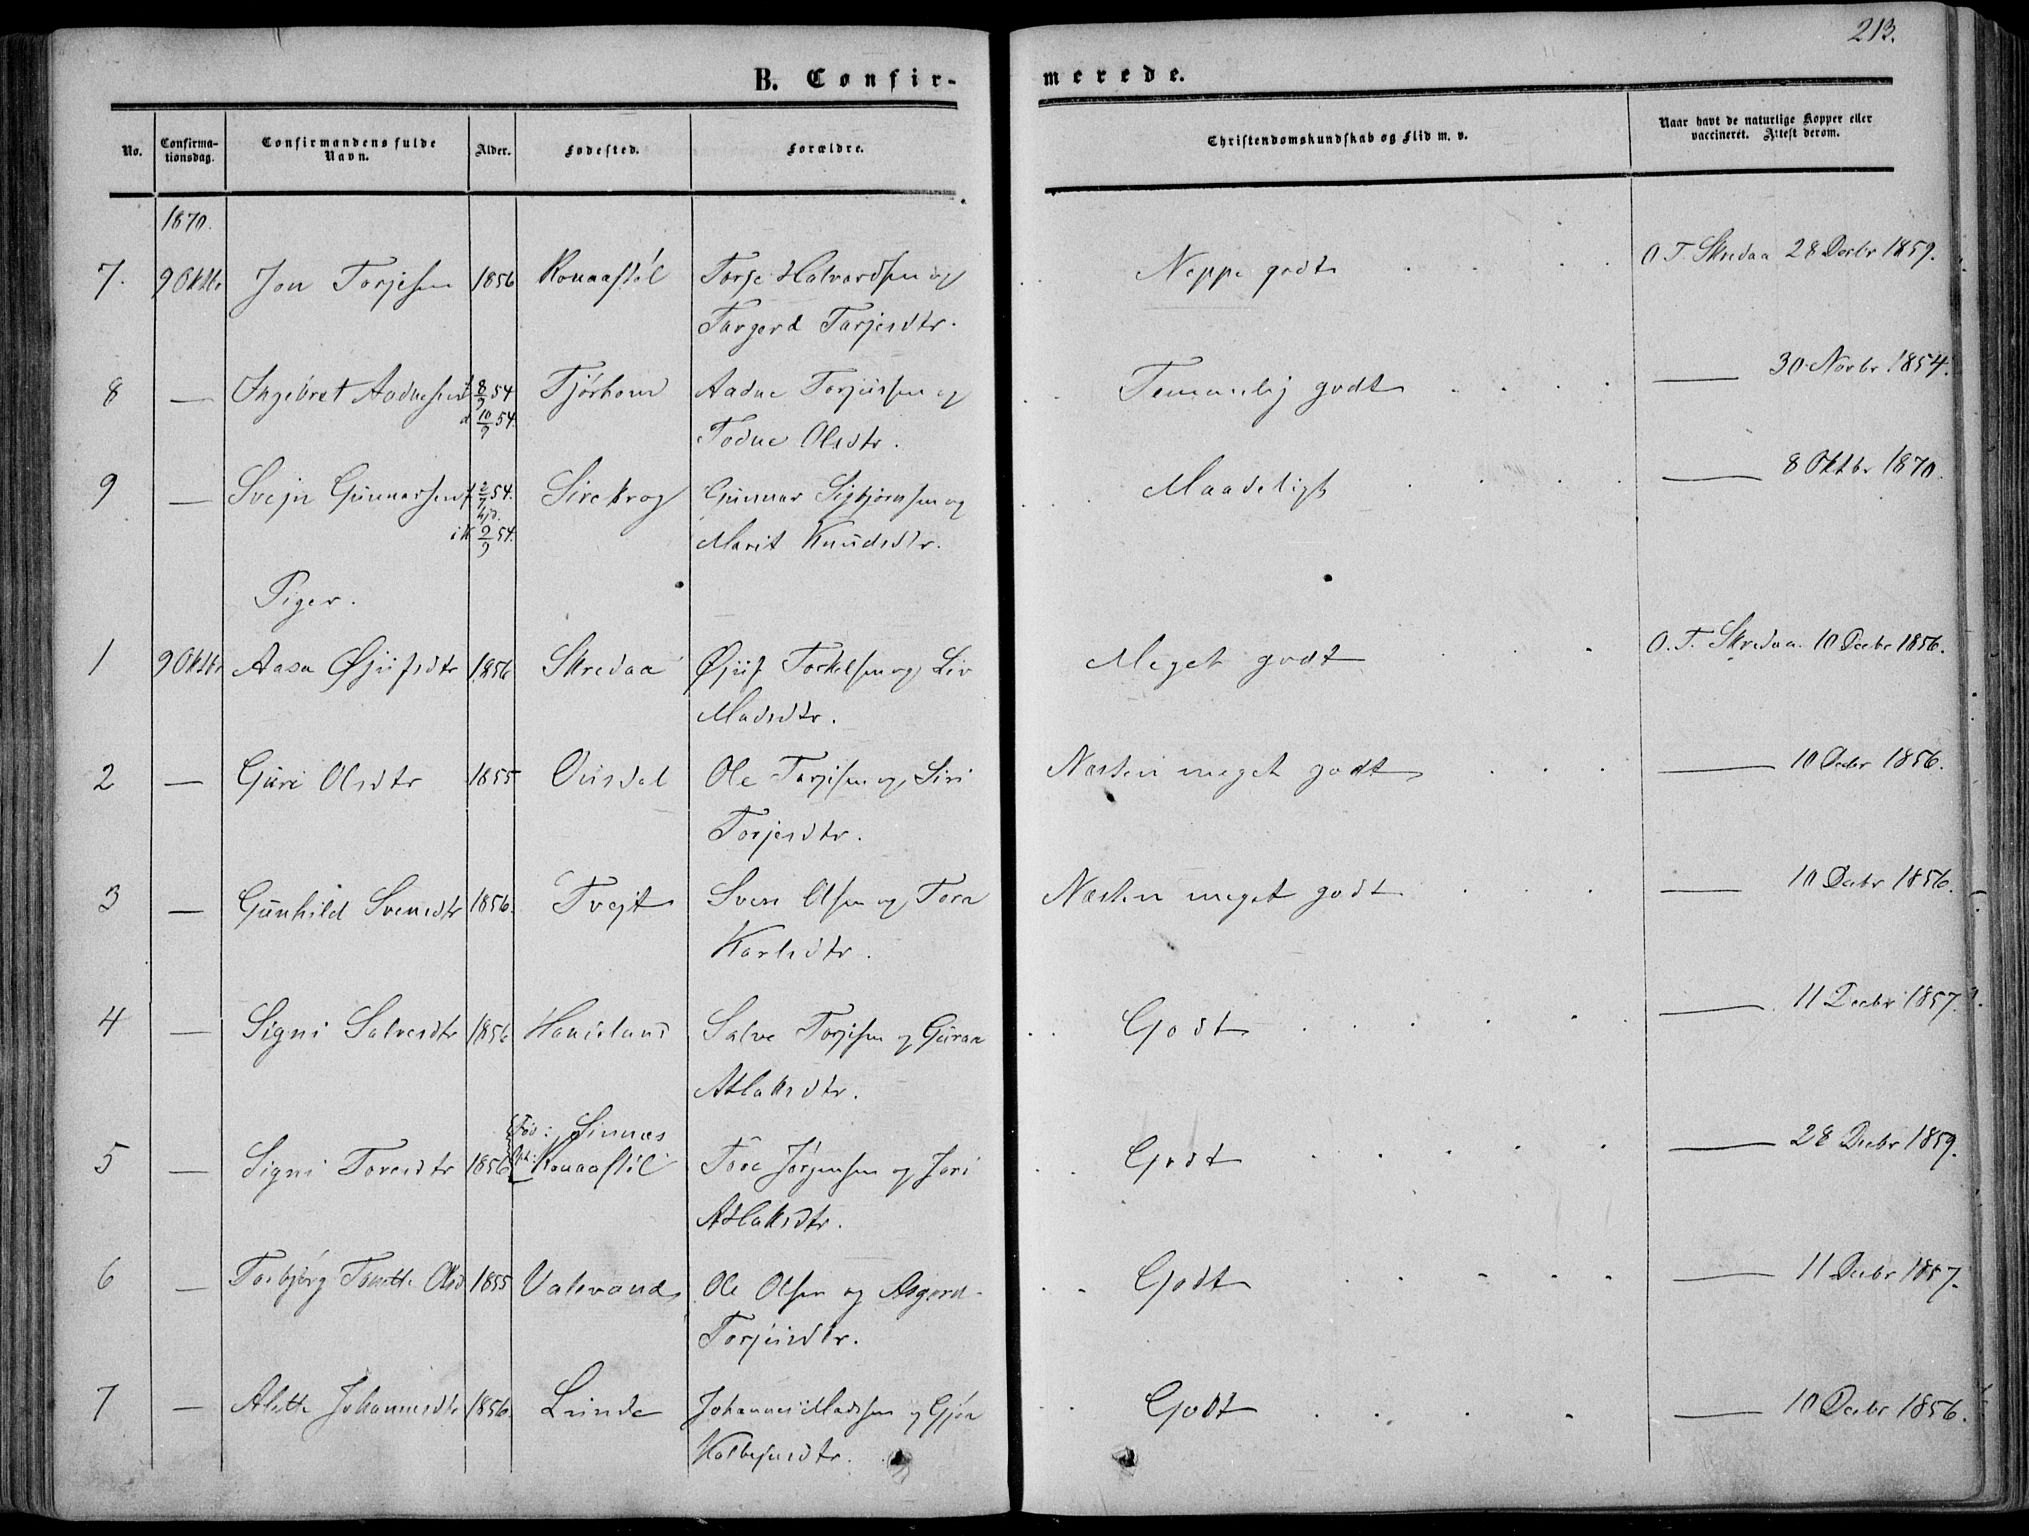 213.
B. Confirmerede.
No. Confirmationsdag. Confirmandens fulde Navn. Alder. Fødested. Forældre. Christendomskundskab og Flid m. v. Naar havt de naturlige Kopper eller vaccineret. Attest derom.
1870.
7. 9 Oktbr Jon Torjesen 1856 Konaastøl Torje Halvardsen og Neppe godt O. T. Skredaa 28 Decbr 1859.
Targerd Tarjesdtr.
8 — Ingebret Aadnesen f 8/9 54 Tjørhom Aadne Torjusen og Temmelig godt — 30 Novbr 1854.
d 10/9 54. Todne Olsdtr.
9 — Svejn Gunnarsen f 2/9 54. Sirekrog Gunnar Sigbjørnsen og Maadeligt — 8 Oktbr 1870.
hjd.
i K 2/9 54. Marit Knudsdtr.
Piger.
1 9 Oktbr Aasa Øjufsdtr 1856 Skredaa Øjuf Torkelsen og Liv Meget godt O. T. Skredaa 10 Decbr 1856.
Madsdtr.
2 — Guri Olsdtr 1855 Ousdal Ole Torjesen og Siri Næsten meget godt — 10 Decbr 1856.
Torjesdtr.
3 — Gunhild Svensdtr 1856. Tvejt Sven Olsen og Tora Næsten meget godt — 10 Decbr 1856.
Karlsdtr.
4 — Signi Salvesdtr 1856 Haugland Salve Torjesen og Guran Godt — 11 Decbr 1857.
Atlaksdtr.
Fød: Sinnes
5 — Signi Toresdtr 1856 Konaastøl Tore Jørgensen og Jori Godt — 28 Decbr 1859.
Atlaksdtr.
6 — Torbjørg Tonette Olsd 1855 Valevand Ole Olsen og Asgerd Godt — 11 Decbr 1857.
Torjusdtr.
7 — Alette Johannesdtr 1856 Linde Johannes Madsen og Gjøa Godt — 10 Decbr 1856.
Kolbensdtr.